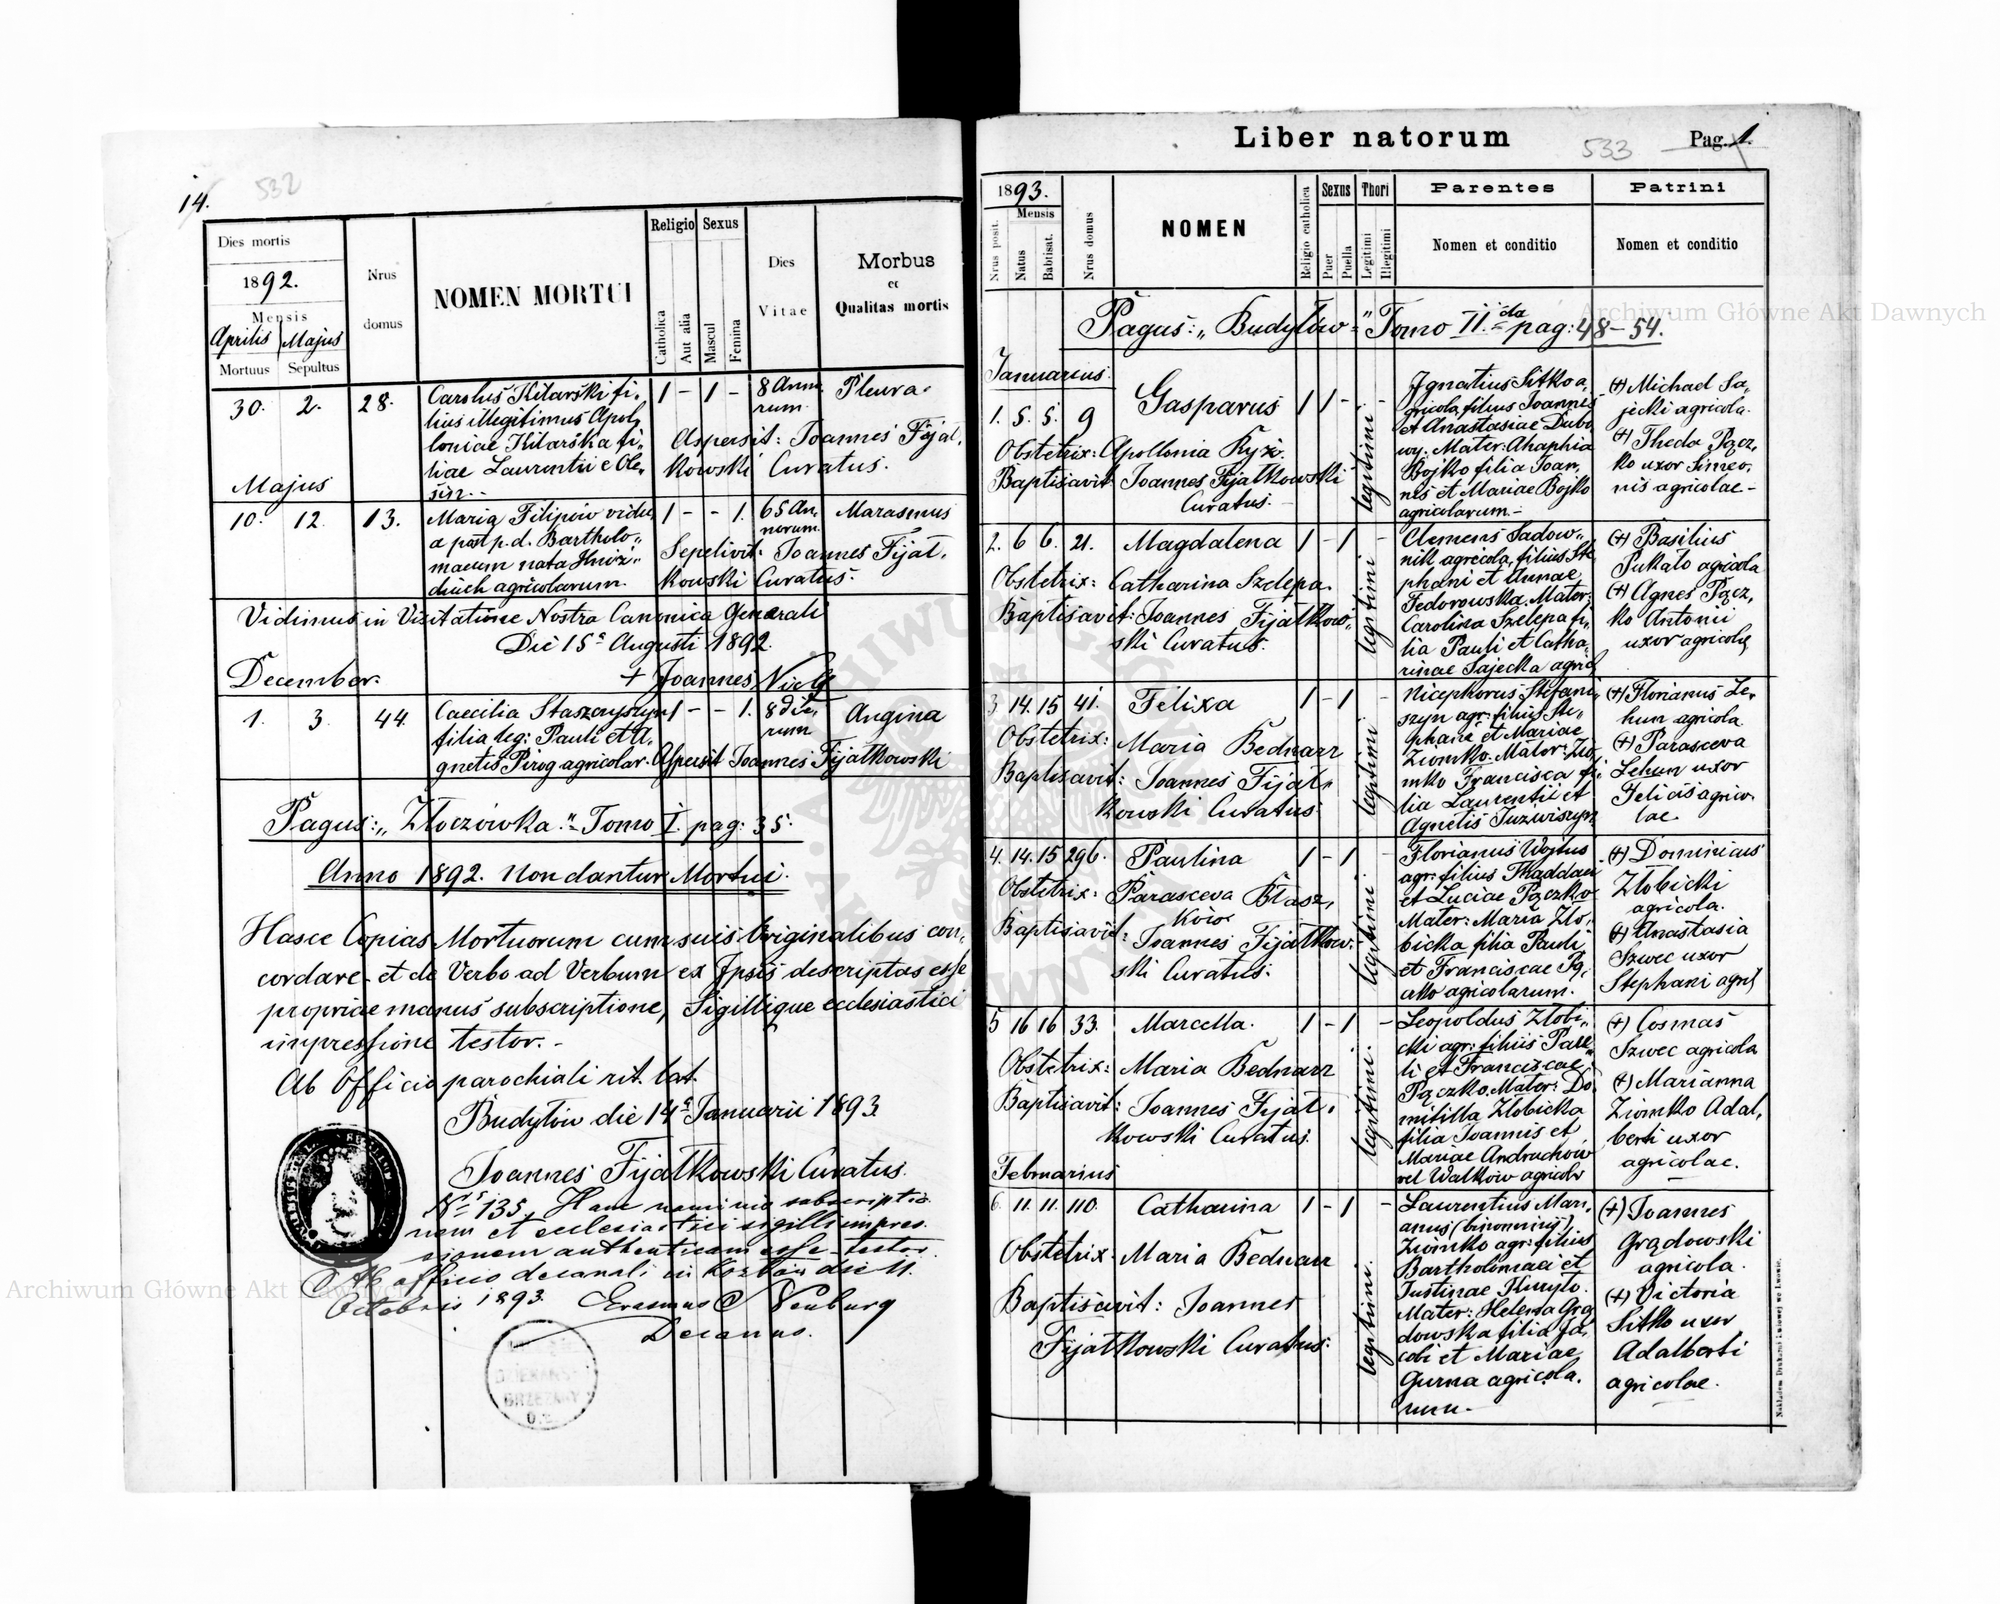 14.
532
Dies mortis
1892.
Mensis
Aprilis Majus
Mortuus Sepultus
Nrus domus
NOMEN MORTUI
Religio
Catholica
Aut alia
Sexus
Mascul
Femina
Dies Vitae
Morbus
et
Qualitas mortis
30. 2. 28.
Carolus Kitarski fi-
lius illegitimus Apol-
loniae Kitarska fi-
liae Laurentii e Ole-
1 - 1 -
8 Anno-
rum
Pleura.
Aspersit: Joannes Fijał-
kowski Curatus.
Majus
10. 12. 13.
Maria Filipów vidu-
a post p. d. Bartholo-
maeum nata
agricolarum.
1 - - 1.
65 An-
norum
Marasmus
Sepelivit: Joannes Fijał-
kowski Curatus.
Vidimus in Visitatione Nostra Canonica Generali
Die 15a Augusti 1892.
+ Joannes
December.
1. 3. 44.
Caecilia Staszczyszyn
filia leg: Pauli et A-
gnetis Pirog agricolar.
1 - - 1.
8 die-
rum
Angina
Aspersit Joannes Fijałkowski
Pagus: „Złoczówka." Tomo I. pag: 35.
Anno 1892. non dantur Mortui.
Hasce Copias Mortuorum cum suis Originalibus con-
cordare et de Verbo ad Verbum ex Ipsis descriptas esse
propriae manus subscriptione, Sigillique ecclesiastici
impressione testor. -
Ab Officio parochiali rit. lat.
Budyłów die 14a Januarii 1893.
Joannes Fijałkowski Curatus.
Nrs 135. Hanc nominis subscriptio-
nem et ecclesiastici sigilli impres-
sionem authenticam esse testor.
Ab officio decanali in Kozłów die 11.
Octobris 1893. Erasmus Neuburg
Decanus.
BRZEZANY
Liber natorum
533
Pag. 1.
1893.
Mensis
Nrus posit.
Natus
Babtisat.
Nrus domus
NOMEN
Religio catholica
Sexus
Puer
Puella
Thori
Legitimi
Illegitimi
Parentes
Nomen et conditio
Patrini
Nomen et conditio
Pagus: „Budyłów" Tomo II.da pag: 48-54.
Januarius
1. 5. 5. 9
Gasparus
1 1 - -
legitimi
Obstetrix: Apollonia Kyż.
Baptisavit Joannes Fijałkowski
Curatus. -
Ignatius Sitko a-
gricola, filius Joannes
et Anastasiae Dubo
wy. Mater: Ahaphia
Bojko filia Joan-
nis et Mariae Bojko
agricolarum. -
(+) Michael Sa-
jecki agricola.
(+) Theda Pącz-
ko uxor Simeo-
nis agricolae -
2. 6 6. 21.
Magdalena
1 - 1 -
legitimi
Obstetrix: Catharina Szelepa.
Baptisavit: Joannes Fijałkow-
ski Curatus.
Clemens Sadow-
nik agricola, filius Ste
phani et Annae
Fedorowska. Mater:
Carolina Szelepa fi-
lia Pauli et Catha-
rinae Sajecka agric
(+) Basilius
Pukało agricola
(+) Agnes Pącz-
ko Antonii
uxor agricolae
3 14. 15 41.
Felixa
1 - 1 -
legitimi
Obstetrix: Maria Bednarz
Baptisavit: Joannes Fijał-
kowski Curatus.
Nicephorus Stefani-
szyn agr: filius Ste-
phani et Mariae
Ziomko. Mater: Zio-
mko Francisca fi-
lia Laurentii et
Agnetis Juzwiszyn
(+) Florianus Le-
hun agricola
(+) Parasceva
Lehun uxor
Felicis agrico-
lae.
4. 14. 15 296.
Paulina
1 - 1 -
legitimi.
Obstetrix: Parasceva Błasz-
ków
Baptisavit: Joannes Fijałkow-
ski Curatus.
Florianus Wojtus
agr: filius Thaddaei
et Luciae Pączko
Mater: Maria Zło-
bicka filia Pauli
et Franciscae Pą-
czko agricolarum.
(+) Dominicus
Złobicki
agricola.
(+) Anastasia
Szwec uxor
Stephani agric
5 16 16 33.
Marcella.
1 - 1 -
legitimi.
Obstetrix: Maria Bednarz
Baptisavit: Joannes Fijał-
kowski Curatus.
Leopoldus Złobi-
cki agr: filius Pau-
li et Franciscae
Pączko. Mater: Do-
mitilla Złobicka
filia Joannis et
Mariae Andruchów
vel Walków agricolar
(+) Cosmas
Szwec agricola
(+) Marianna
Ziomko Adal-
berti uxor
agricolae.
Februarius
6. 11. 11. 110.
Catharina
1 - 1 -
legitimi.
Obstetrix: Maria Bednarz
Baptisavit: Joannes
Fijałkowski Curatus.
Laurentius Mari-
anus (binominis)
Ziomko agr: filius
Bartholomaei et
Justinae Kmyto.
Mater: Helena Grą
dowska filia Ja-
cobi et Mariae
Gurna agricola-
rum -
(+) Joannes
Grądowski
agricola.
(+) Victoria
Sitko uxor
Adalberti
agricolae.
Nakładem Drukarni Ludowej we Lwowie.
Archiwum Główne Akt Dawnych
Archiwum Główne Akt Dawnych